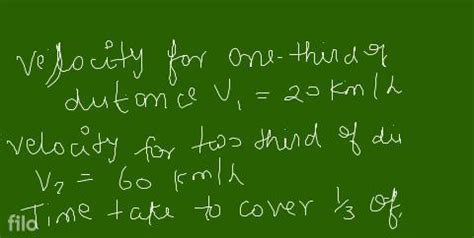 Velocity for one-third of
distance V₁ = 20 km/h
velocity for two third of dis
V₂ = 60 km/h
Time take to cover 1/3 of,
filo